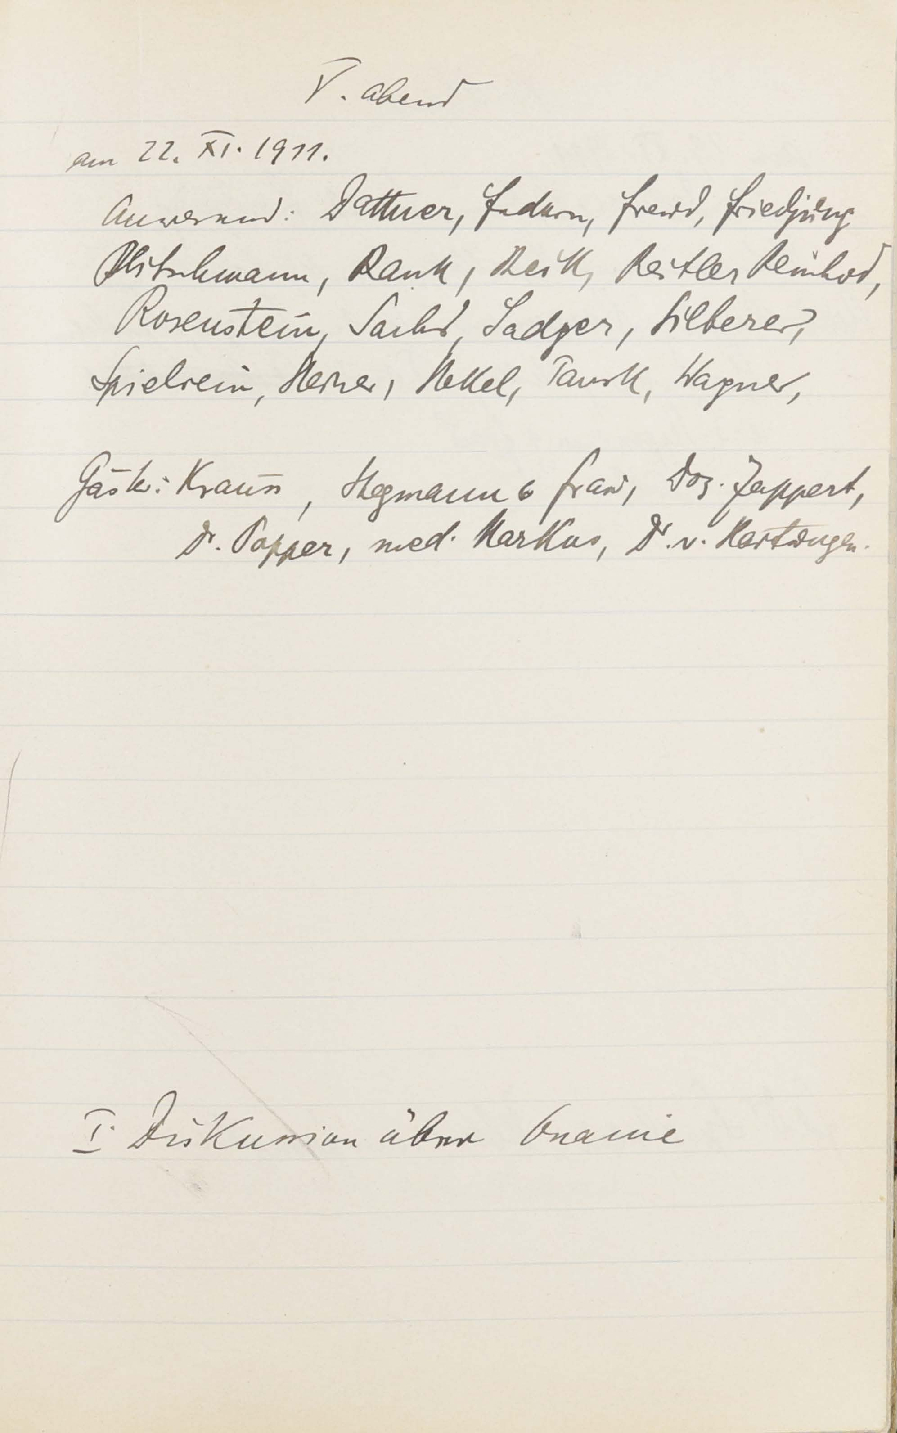 V. Abend
am 22. XI. 1911.
Anwesend: Dattner, Federn, Freud, Friedjung
Hitschmann, Rank, Reik, Reitler Reinhold,
Rosenstein, Sachs, Sadger, Silberer,
Spielrein, Steiner, Stekel, Tausk, Wagner,
Gäste: Krauss, Stegmann u Frau, Doz. Zappert,
Dr. Popper, med. Markus, Dr. v. Hartungen.
I. Diskussion über Onanie